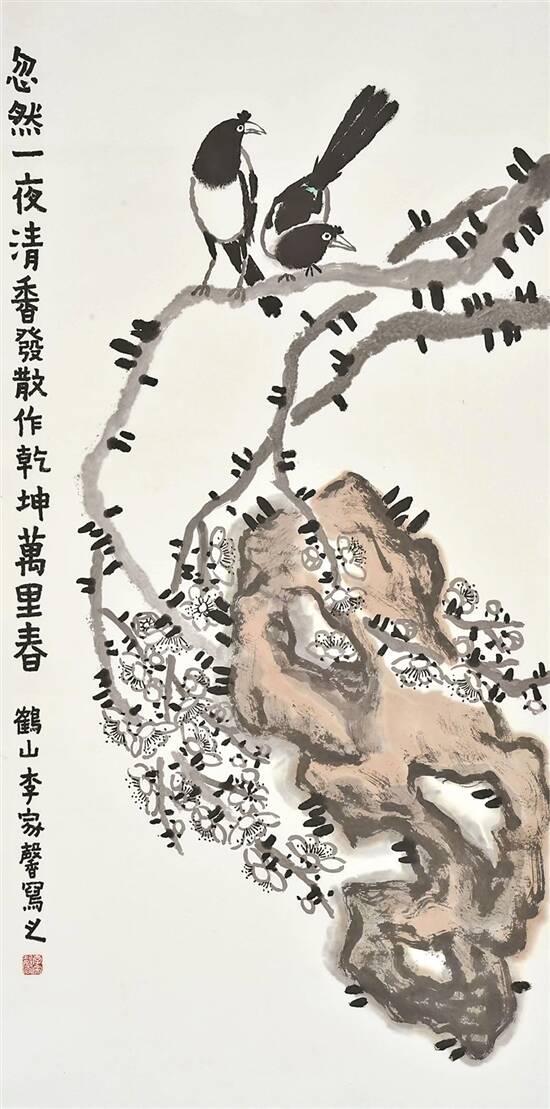 忽然一夜清香發散作乾坤萬里春 鶴山李家馨寫之